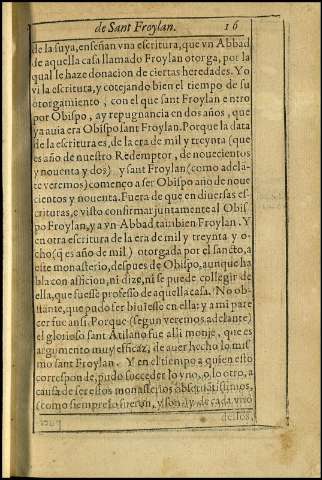 de Sant Froylan. 16
de la suya, enseñan vna escritura, que vn Abbad
de aquella casa llamado Froylan otorga, por la
qual se haze donacion de ciertas heredades. Yo
vi la escritura, y cotejando bien el tiempo de su
otorgamiento, con el que sant Froylan entro
por Obispo, ay repugnancia en dos años, que
ya auia era Obispo sant Froylan. Porque la data
de la escritura es, de la era de mil y treynta (que
es año de nuestro Redemptor, de nouecientos
y nouenta y dos) y sant Froylan (como adela-
te veremos) començo a ser Obispo año de noue
cientos y nouenta. Fuera de que en diuersas es-
crituras, e visto confirmar juntamente al Obis-
po Froylan, y a vn Abbad tambien Froylan. Y
en otra escritura de la era de mil y treynta y o-
cho (q̃ es año de mil) otorgada por el sancto, a
este monasterio, despues de Obispo, aunque ha
bla con aficion, ni dize, ni se puede collegir de
ella, que fuesse professo de aquella casa. No ob-
stante, que pudo ser biuiesse en ella: y a mi pare
cer fue ansi. Porque (segun veremos adelante)
el glorioso sant Atilano fue alli monje, que es
argumento muy efficaz, de auer hecho lo mis
mo sant Froylan. Y en el tiempo a quien esto
corresponde, pudo succeder lo vno, o lo otro, a
causa de ser estos monasterios
(como siempre lo fueron, y son) y de cada vno
dellos,